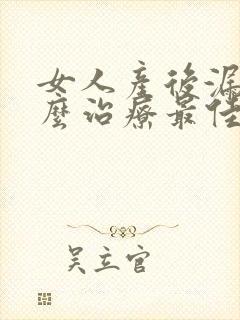 女人產後漏
麼治療最佳
吳立官